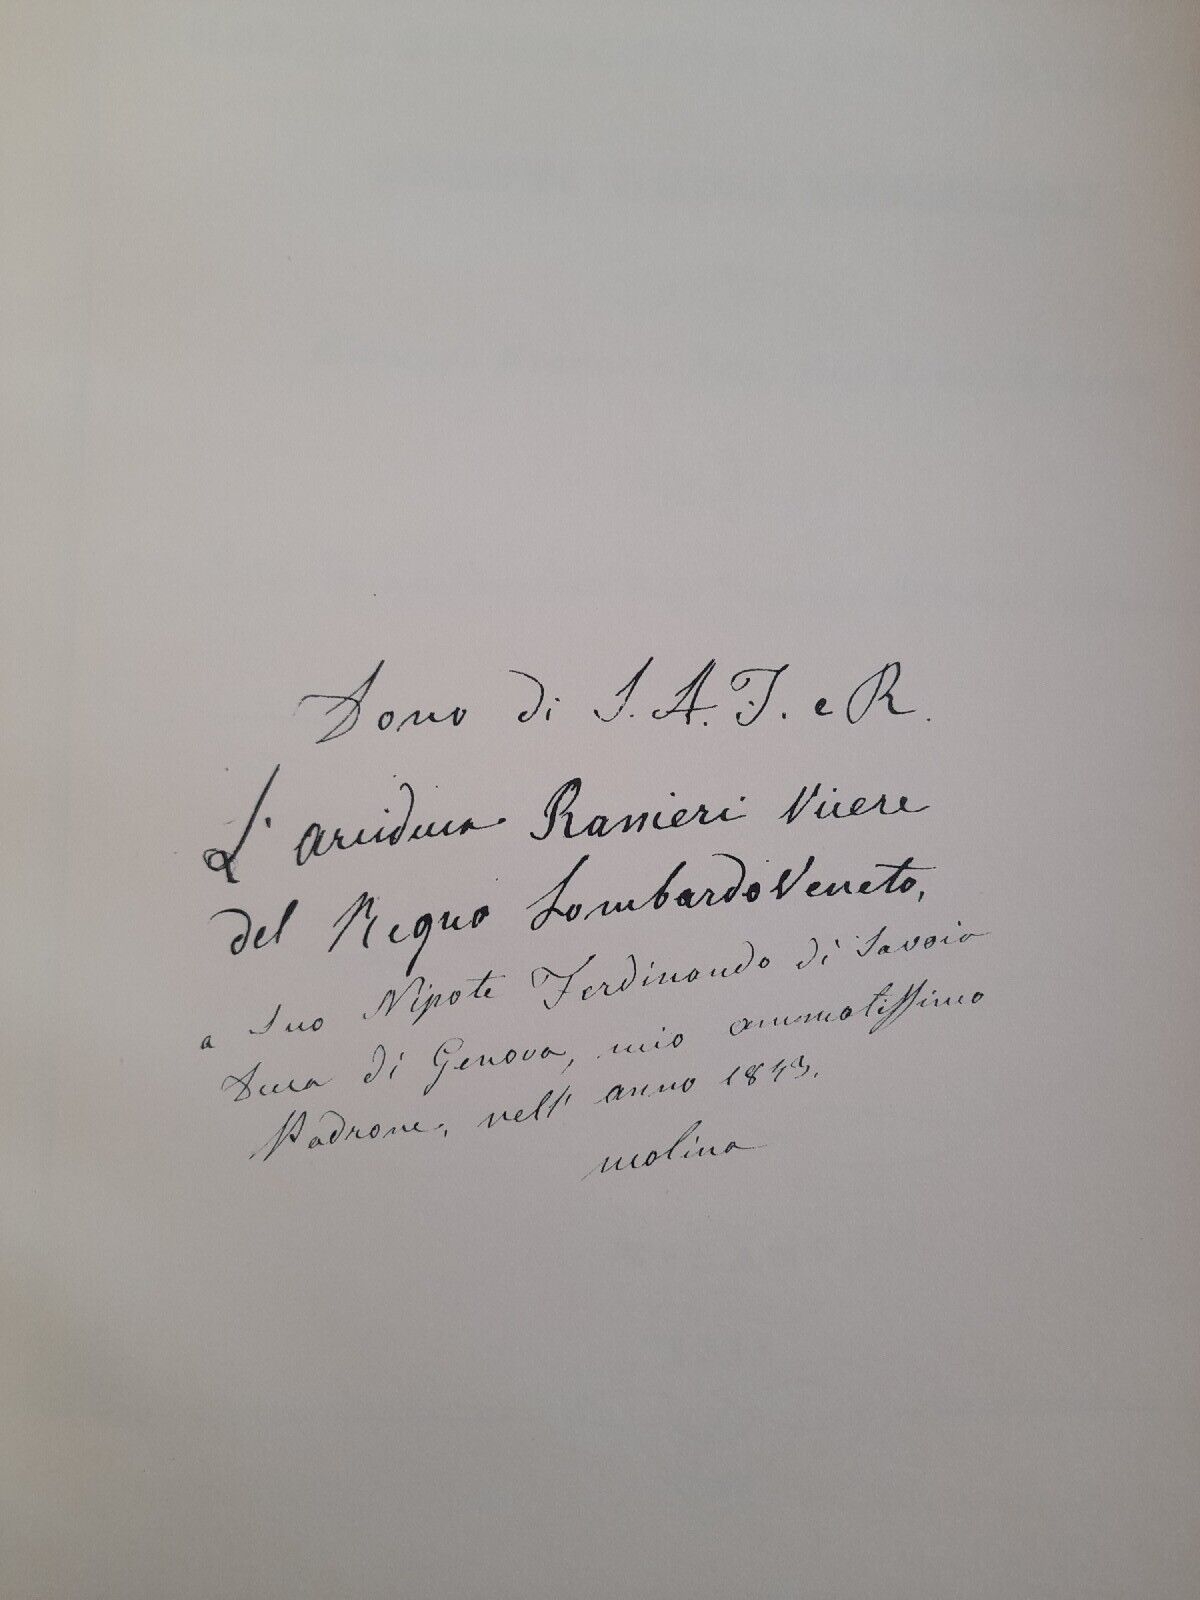 Dono di S. A. I. e R.
L'Arciduca Ranieri Vicere
del Regno LombardoVeneto,
a Suo Nipote Ferdinando di Savoia
Duca di Genova, mio ammatissimo
Padrone, nell' anno 1843.
molina